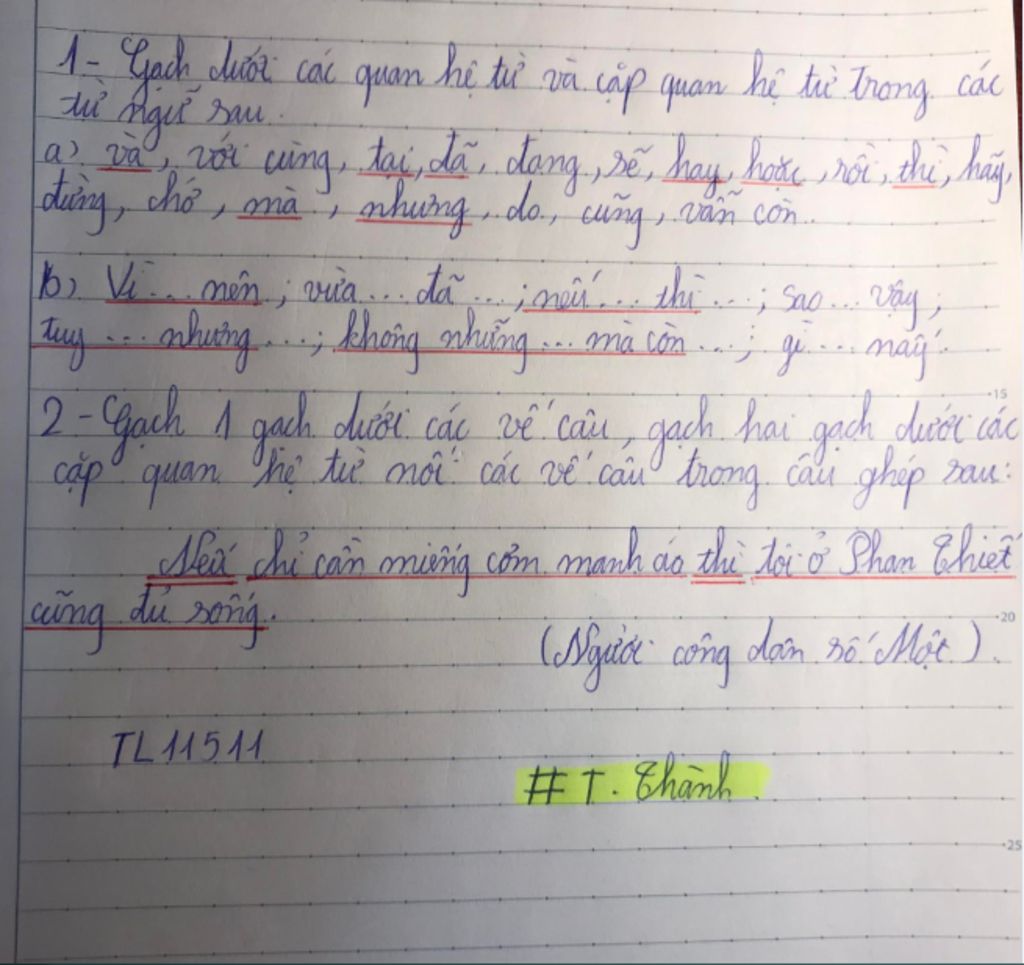 1- Gạch dưới các quan hệ từ và cặp quan hệ từ trong các
từ ngữ sau.
a) và, với cùng, tại, đã, đang, sẽ, hay, hoặc, rồi, thì, hãy,
đừng, chớ, mà, nhưng, do, cũng, vẫn còn.
b) Vì... nên; vừa... đã...; nếu... thì...; sao... vậy;
tuy... nhưng...; không những... mà còn...; gì... nấy.
15
2- Gạch 1 gạch dưới các vế câu, gạch hai gạch dưới các
cặp quan hệ từ nối các vế câu trong câu ghép sau:
Nếu chỉ cần miếng cơm manh áo thì tôi ở Phan Thiết
cũng đủ sống.
20
(Người công dân số Một).
TL11511
# T. Thành.
25